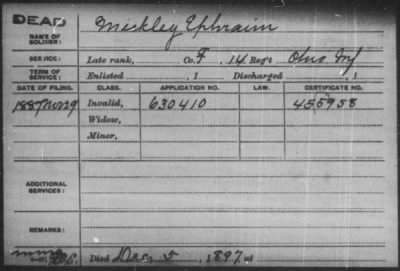 DEAD
NAME OF SOLDIER: Mickley Ephraim
SERVICE: Late rank, Co. F, 14 Reg't Ohio Inf
TERM OF SERVICE: Enlisted , 1 Discharged , 1
DATE OF FILING. CLASS. APPLICATION NO. LAW. CERTIFICATE NO.
1887 Nov 29 Invalid, 630410 455958
Widow,
Minor,
ADDITIONAL SERVICES:
REMARKS:
Died Dec, 5, 1897, at